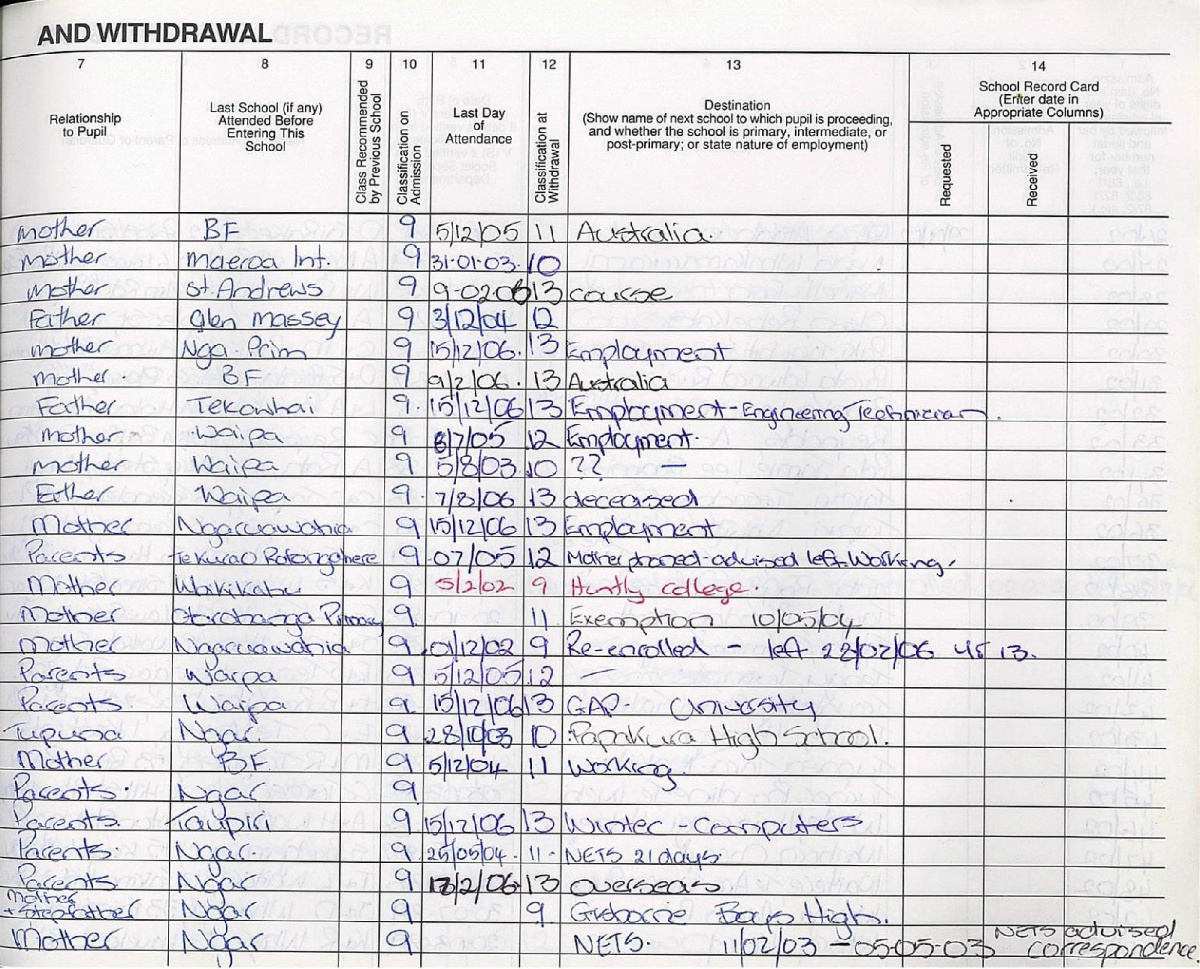 AND WITHDRAWAL
7 8 9 10 11 12 13 14
Relationship to Pupil
Last School (if any) Attended Before Entering This School
Class Recommended by Previous School
Classification on Admission
Last Day of Attendance
Classification at Withdrawal
Destination
(Show name of next school to which pupil is proceeding, and whether the school is primary, intermediate, or post-primary; or state nature of employment)
School Record Card
(Enter date in Appropriate Columns)
Requested
Received
Mother BF 9 5/12/05 11 Australia.
Mother Maeroa Int. 9 31-01-03. 10
Mother St. Andrews 9 9-02 06 13 course
Father Glen Massey 9 3/12/04 12
Mother Nga. Prim 9 15/12/06. 13 Employment
Mother. BF 9 9/2/06. 13 Australia
Father Tekowhai 9. 15/12/06 13 Employment - Engineering Technician.
Mother Waipa 9 8/7/05 12 Employment.
Mother Waipa 9 5/8/03 10 ?? -
Father Waipa 9. 7/8/06 13 deceased
Mother Ngaruawahia 9 15/12/06 13 Employment
Parents 9 -07/05 12 Mother phoned-advised left. Working.
Mother 9 5/2/02 9 Huntly college.
Mother Primary 9 11 Exemption 10/05/04
Mother Ngaruawahia 9 01/12/02 9 Re-enrolled - left 22/02/06 yr 13.
Parents Waipa 9 5/12/05 12 -
Parents Waipa 9 15/12/06 13 GAP. University
Tupuna Ngar. 9 28/10/03 10 Papakura High School.
Mother BF 9 5/12/04 11 Working.
Parents. Ngar 9
Parents. Taupiri 9 15/12/06 13 Winter - Computers
Parents. Ngar. 9 25/05/04. 11. NETS 21 days.
Parents Ngar 9 13 overseas
Mother + Stepfather Ngar 9 9 Boys High.
Mother Ngar 9 NETS. 11/02/03 - 05-05-03 NETS advised correspondence.